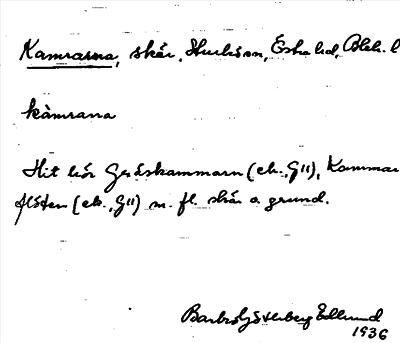 Kamrarna, skär, Sturkön, Östra hd, Blek. l
kàmrana
Hit hör Gräskammarn (ek., G11), Kammar
flöten (ek., G11) m. fl. skär o. grund.
Barbro Söderberg Edlund
1936